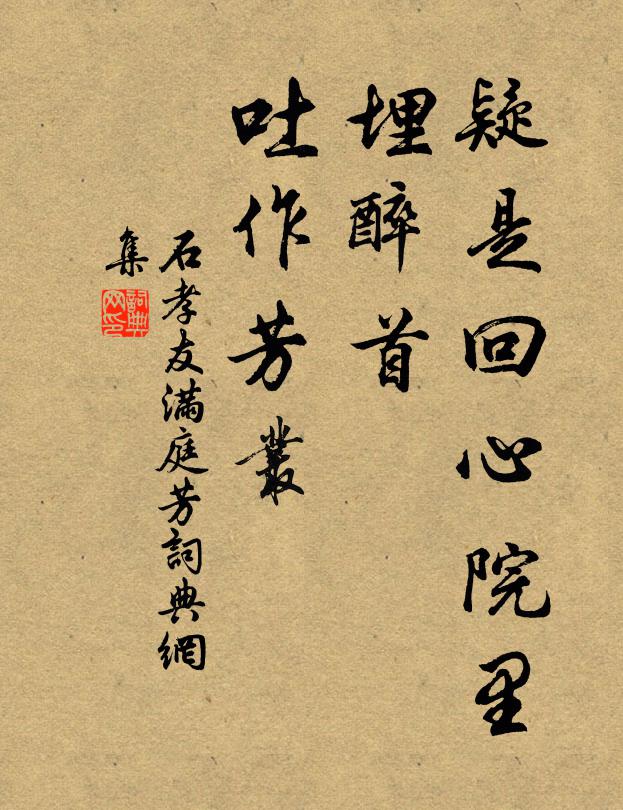 疑是回心院里
埋醉首
吐作芳叢
石孝友满庭芳詞典網
集
詞典网印